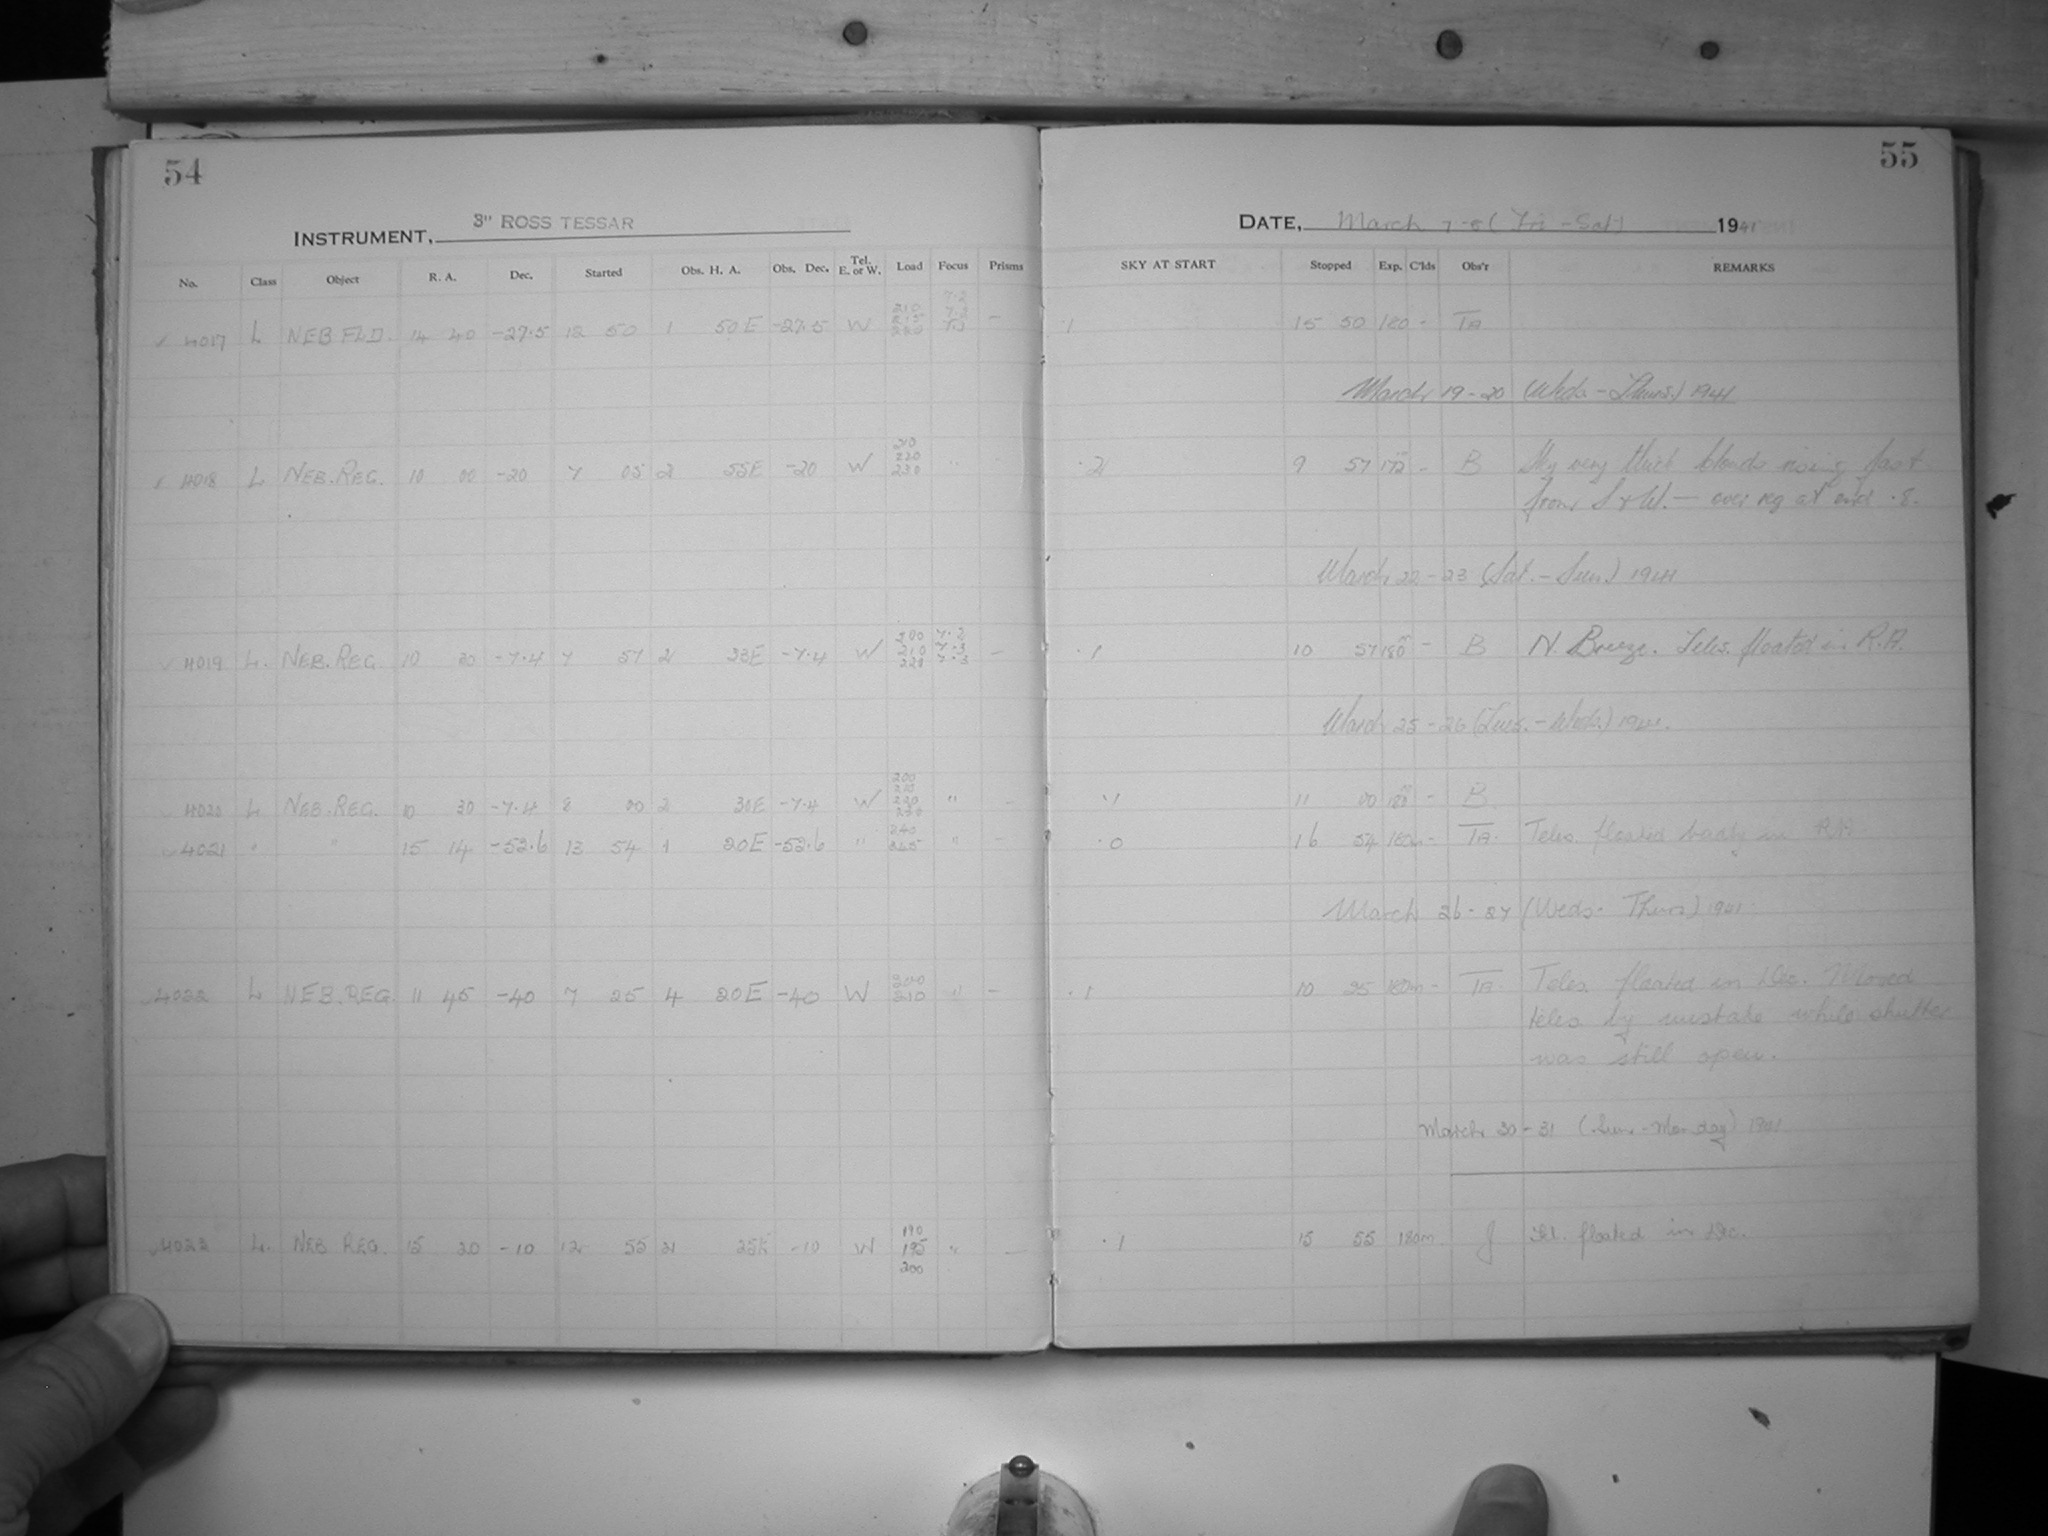 54
INSTRUMENT, 3" ROSS TESSAR
No. Class Object R. A. Dec. Started Obs. H. A. Obs. Dec. Tel. E. or W. Load Focus Prisms
4017 L NEB FLD. 14 40 -27.5 12 50 1 50E -27.5 W 210 215 220 7.2 7.2 –
4018 L NEB. REG. 10 00 -20 7 05 2 55E -20 W 210 220 230 "
4019 L. NEB. REG. 10 30 -7.4 7 57 2 33E -7.4 W 200 210 220 7.2 7.3 7.3 –
4020 L NEB. REG. 10 30 -7.4 8 00 2 30E -7.4 W 200 210 220 230 " –
4021 " " 15 14 -53.6 13 54 1 20E -53.6 " 240 245 " –
4022 L NEB. REG. 11 45 -40 7 25 4 20E -40 W 200 210 " –
4023 L. NEB REG. 15 20 -10 12 55 2 25E -10 W 190 195 200 " –
55
DATE, March 7-8 (Fri - Sat) 1941
SKY AT START Stopped Exp. C'lds Obs'r REMARKS
.1 15 50 180 - TA
March 19-20 (Weds - Thurs.) 1941
.2 9 57 172 - B Sky very thick clouds rising fast
from S & W. — over reg at end .8.
March 22-23 (Sat. - Sun.) 1941
.1 10 57 180 - B N. Breeze. Teles. floated in R.A.
March 25-26 (Tues. - Weds) 1941.
.1 11 00 180 - B
.0 16 54 180m - TA. Teles. floated badly in RA
March 26-27 (Weds - Thurs) 1941
.1 10 25 180m - TA Teles. floated in Dec. Moved
teles by mistake while shutter
was still open.
March 30-31 (Sun. - Monday) 1941
.1 15 55 180m J Tel. floated in Dec.